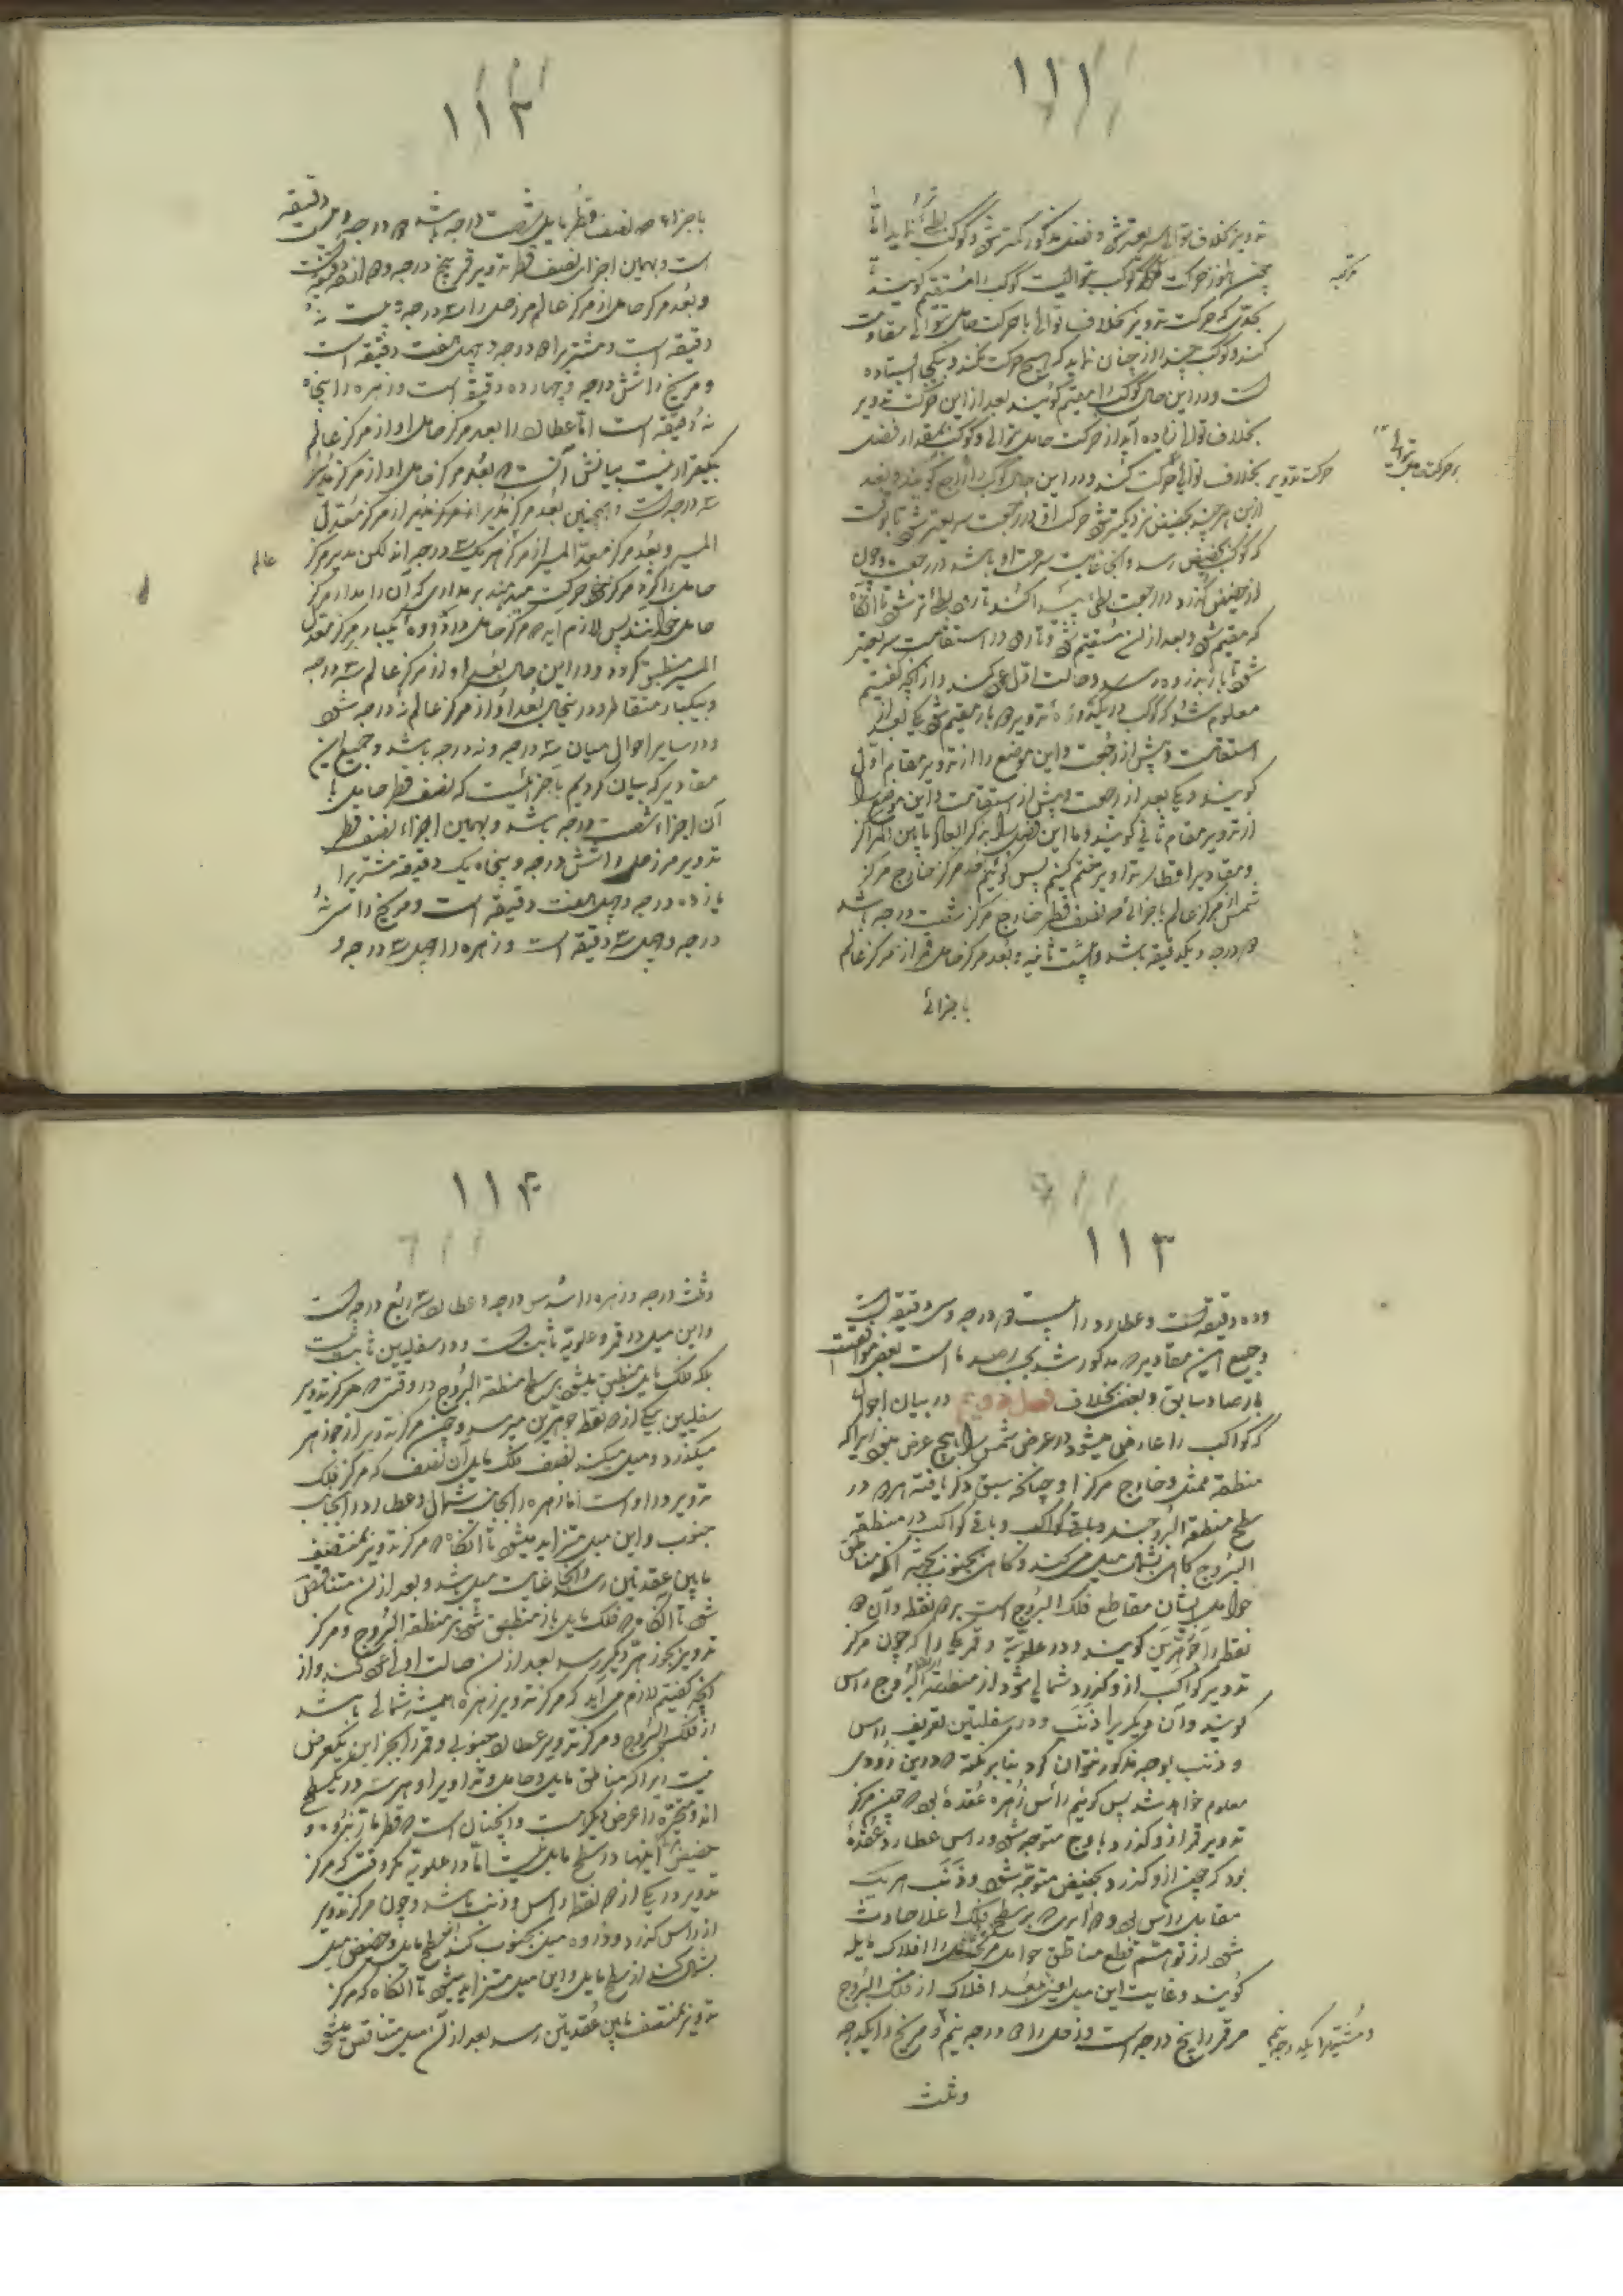 ۱۱۱
تدویر بخلاف توالی سریعتر شود و فضل مذکور کمتر شود و کوکب بطئ نماید اما
چون هنوز حرکت مرکبه کوکب بتوالیست کوکب را مستقیم گویند
بحدی که حرکت تدویر بخلاف توالی با حرکت حامل بتوالی مقاومت
کند و کوکب چند روز چنان نماید که هیچ حرکت نکند و بیکجا ایستاده
است و در این حال کوکب را مقیم گویند بعد از این حرکت تدویر
بخلاف توالی زیاده آید از حرکت حامل بتوالی و کوکب بمقدار فضل
حرکت تدویر بخلاف توالی حرکت کند و در این حال کوکب را راجع گویند و بعد
ازین هر چند بحضیض نزدیکتر شود حرکت او در رجعت سریعتر شود تا بوقت
که کوکب بحضیض رسد و آنجا غایت سرعت او باشد در رجعت و چون
از حضیض گذرد در رجعت بطئ پیدا کند تا بطئ تر شود تا آنگاه
که مقیم شود و بعد از آن مستقیم شود و در استقامت سریعتر
شود تا باز بذروه رسد و حالت اول عود کند و از آنچه گفتیم
معلوم شد که کوکب در یکدوره تدویر دو بار مقیم شود یکی بعد از
استقامت و پیش از رجعت و این موضع را از تدویر مقام اول
گویند و یکی بعد از رجعت و پیش از استقامت و این موضع را
از تدویر مقام ثانی گویند و ما این فصل را بذکر ابعاد مابین المراکز
و مقادیر اقطار تداویر ختم کنیم پس گوئیم بعد مرکز خارج مرکز
شمس از مرکز عالم باجزائی که نصف قطر خارج مرکز شصت درجه باشد
دو درجه و یکدقیقه باشد و بیست ثانیه و بعد مرکز حامل قمر از مرکز عالم
باجزائی
مرکبه
بر حرکت حامل بتوالی
۱۱۲
باجزاء که نصف قطر مایل شصت درجه باشد ده درجه و دقیقه
است و بهمین اجزای نصف قطر تدویر قمر پنج درجه و دقیقه است
و بعد مرکز حامل از مرکز عالم مر زحل را سه درجه و بیست و نه
دقیقه است و مشتریرا دو درجه و چهل و هفت دقیقه است
و مریخ را شش درجه و چهارده دقیقه است و زهره را پنجاه
نه دقیقه است اما عطارد را بعد مرکز حامل او از مرکز عالم
بیکقرار نیست بیانش آنست که بعد مرکز حامل او از مرکز مدیر
سه درجه است و همچنین بعد مرکز مدیر از مرکز معدل
المسیر و بعد مرکز معدل المسیر از مرکز هر یک سه درجه اند لکن مدیر مرکز
عالم
حامل را گرد مرکز خود حرکت میدهد بر مداری که آن را مدار مرکز
حامل خوانند پس لازم آید که مرکز حامل در دوره یکبار بمرکز معدل
المسیر منطبق گردد و در این حال بعد او از مرکز عالم سه درجه
و بیکبار متقاطر و در آنحال بعد او از مرکز عالم نه درجه شود
و در سایر احوال میان سه درجه و نه درجه باشد و جمیع این
مقادیر که بیان کردیم باجزائیست که نصف قطر حامل با
آن اجزاء شصت درجه باشد و بهمین اجزاء نصف قطر
تدویر مر زحل را شش درجه و پنجاه یک دقیقه مشتریرا
یازده درجه و چهل هفت دقیقه است و مریخ را سی نه
درجه و چهل سه دقیقه است و زهره را چهل سه درجه و
۱۱۳
و ده دقیقه است و عطارد را بیست دو درجه و سی دقیقه است
و جمیع این مقادیر که مذکور شد بحسب رصد ما است بعضی موافقت
بارصاد سابق و بعضی بخلاف فصل دویم در بیان احوال
که کواکب را عارض میشود در عرض شمس را هیچ عرض نبود زیراکه
منطقه ممثل و خارج مرکز او چنانکه سبق ذکر یافته هر دو در
سطح منطقة البروجند و باقی کواکب در منطقه
البروج گاهی بشمال میل میکنند و گاهی بجنوب بجهت آنکه مناطق
حوامل ایشان مقاطع فلک البروج است بر دو نقطه و آن دو
نقطه را جوزهرین گویند و در علویه و قمر یکی را که چون مرکز
تدویر کواکب از و گذرد شمالی شود از منطقة البروج راس
گویند و آن دیگریرا ذنب و در سفلیین تعریف راس
و ذنب بوجه مذکور نتوان کرد بنابر نکته که درین زودی
معلوم خواهد شد پس گوئیم رأس زهره عقده بود که چون مرکز
تدویر قمر از و گذرد باوج متوجه شود و راس عطارد عقده
بود که چون ازو گذرد بحضیض متوجه شود و ذنب هر یک
مقابل راس بود و دوایری که بر سطح فلک اعلا حادث
شود از توهم قطع مناطق حوامل را افلاک مایله
گویند و غایت این میل اعنی بعد افلاک از فلک البروج
مر قمر را پنج درجه است و زحل را دو درجه نیم و مریخ را یکدرجه
و مشتریرا یکدرجه نیم
وثلث
۱۱۴
وثلث درجه و زهره را سدس درجه و عطارد را سه ربع درجه است
و این میل در قمر و علویه ثابت است و در سفلیین ثابت نیست
بلکه فلک مایل منطبق میشود بر سطح منطقة البروج در وقتی که مرکز تدویر
سفلیین بیکی از دو نقطه جوزهرین میرسد و چون مرکز تدویر از جوزهر
میگذرد و میل میکند نصف فلک مایل آن نصف که مرکز فلک
تدویر در او است اما زهره را بجانب شمال و عطارد را بجانب
جنوب و این میل متزاید میشود تا آنگاه که مرکز تدویر بمنتصف
مابین عقدتین رسد و آنجا غایت میل باشد و بعد از آن متناقص
شود تا آنگاه که فلک مایل باز منطبق شود بر منطقة البروج و مرکز
تدویر بجوزهر دیگر رسد بعد از آن حالت اولی عود کند و از
آنچه گفتیم لازم می آید که مرکز تدویر زهره همیشه شمالی باشد
از فلک البروج و مرکز تدویر عطارد جنوبی و قمر را بجز این یکعرض
نیست زیراکه مناطق مایل و حامل و تدویر او هر سه در یک سطح
اند و متحیره را عرض دیگر است و آنچنان است که قطر مار بذروه و
حضیض اینها در سطح مایل نیست اما در علویه مگر وقتی که مرکز
تدویر در یکی از دو نقطه راس و ذنب باشد و چون مرکز تدویر
از راس گذرد و ذروه میل بجنوب کند از سطح مایل و حضیض میل
بشمال کند از سطح مایل و این میل متزاید میشود تا آنگاه که مرکز
تدویر بمنتصف مابین عقدتین رسد بعد از آن میل متناقص میشود